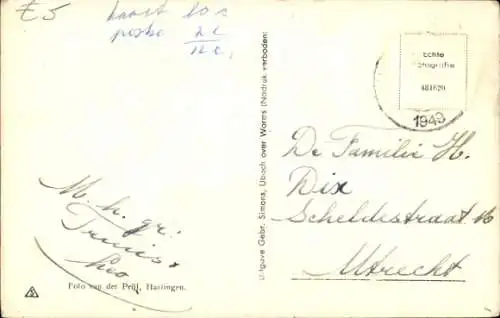 £5
kaart 10 c
porto 2 c
12 c.
M. h. gr.
Truus +
Leo
Foto van der Prijl, Harlingen.
Uitgave Gebr. Simons, Ubach over Worms (Nadruk verboden)
Echte
Fotografie
1949
De Familie H.
Dix
Scheldestraat 16
Utrecht